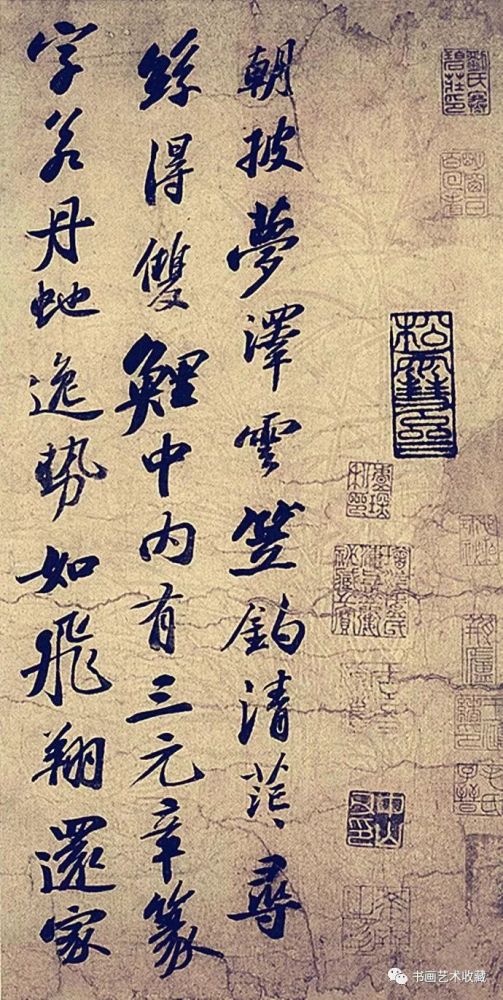 劉氏寒碧莊印
朝披夢澤雲笠釣清茫〻尋
絲得雙鯉中內有三元章篆
字若丹虵逸勢如飛翔還家
书画艺术收藏